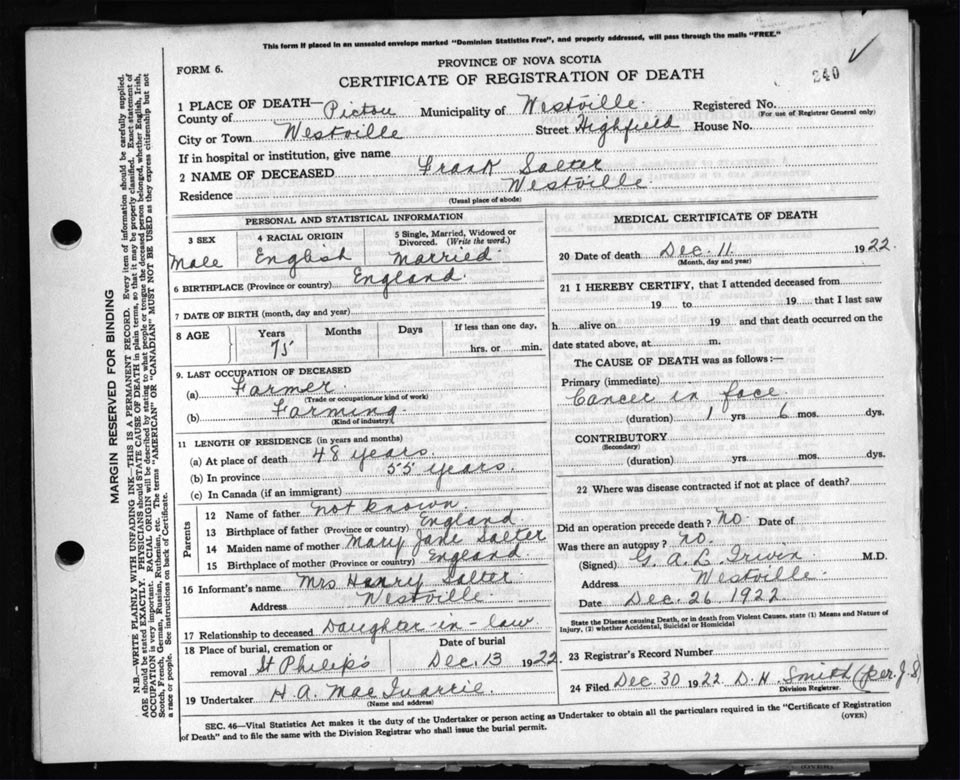 This form if placed in an unsealed envelope marked "Dominion Statistics Free", and properly addressed, will pass through the mails "FREE."
FORM 6.
PROVINCE OF NOVA SCOTIA
CERTIFICATE OF REGISTRATION OF DEATH
240
1 PLACE OF DEATH—
County of Pictou Municipality of Westville Registered No.
(For use of Registrar General only)
City or Town Westville Street Highfield House No.
If in hospital or institution, give name
2 NAME OF DECEASED Frank Salter
Residence Westville
(Usual place of abode)
PERSONAL AND STATISTICAL INFORMATION
3 SEX 4 RACIAL ORIGIN 5 Single, Married, Widowed or Divorced. (Write the word.)
Male English Married
6 BIRTHPLACE (Province or country) England
7 DATE OF BIRTH (month, day and year)
8 AGE Years Months Days If less than one day,
75 hrs. or min.
9. LAST OCCUPATION OF DECEASED
(a) Farmer
(Trade or occupation, or kind of work)
(b) Farming
(Kind of industry)
11 LENGTH OF RESIDENCE (in years and months)
(a) At place of death 48 years.
(b) In province 55 years.
(c) In Canada (if an immigrant)
Parents
12 Name of father not known
13 Birthplace of father (Province or country) England
14 Maiden name of mother Mary Jane Salter
15 Birthplace of mother (Province or country) England
16 Informant's name Mrs Henry Salter
Address Westville
17 Relationship to deceased Daughter-in-law
18 Place of burial, cremation or removal St Philip's Date of burial Dec. 13 1922
19 Undertaker H. A. Mac
(Name and address)
MEDICAL CERTIFICATE OF DEATH
20 Date of death Dec. 11. 1922.
(Month, day and year)
21 I HEREBY CERTIFY, that I attended deceased from
19 to 19 that I last saw
h alive on 19 and that death occurred on the
date stated above, at m.
The CAUSE OF DEATH was as follows:—
Primary (immediate)
Cancer in face
(duration) 1 yrs 6 mos. dys.
CONTRIBUTORY
(Secondary)
(duration) yrs. mos. dys.
22 Where was disease contracted if not at place of death?
Did an operation precede death? no Date of
Was there an autopsy? no.
(Signed) G. A. L. Irwin M.D.
Address Westville
Date Dec. 26, 1922
State the Disease causing Death, or in death from Violent Causes, state (1) Means and Nature of Injury, (2) whether Accidental, Suicidal or Homicidal
23 Registrar's Record Number
24 Filed Dec 30 1922 D. H. Smith (per. J. S)
Division Registrar.
SEC. 46—Vital Statistics Act makes it the duty of the Undertaker or person acting as Undertaker to obtain all the particulars required in the "Certificate of Registration
of Death" and to file the same with the Division Registrar who shall issue the burial permit.
(OVER)
MARGIN RESERVED FOR BINDING
N.B.—WRITE PLAINLY WITH UNFADING INK—THIS IS A PERMANENT RECORD. Every item of information should be carefully supplied.
AGE should be stated EXACTLY. PHYSICIANS should STATE CAUSE OF DEATH in plain terms, so that it may be properly classified. Exact statement of
OCCUPATION is very important. RACIAL ORIGIN will be described by stating to what people or tongue the deceased person belonged, whether English, Irish,
Scotch, French, German, Russian, Ruthenian, etc. The terms "AMERICAN" or "CANADIAN" MUST NOT BE USED as they express citizenship but not
a race or people. See instructions on back of Certificate.